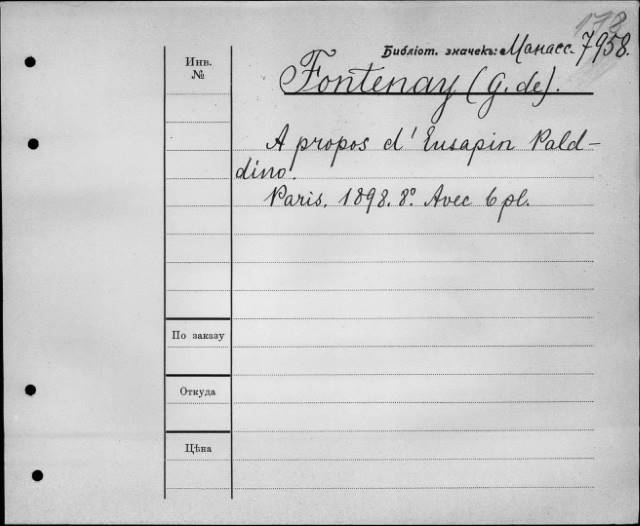 178
Библіот. значекъ: Манасс. 7958.
Инв.
№
Fontenay (G. de).
A propos d'Eusapin Pald-
dino.
Paris. 1898. 8°. Avec 6 pl.
По заказу
Откуда
Цѣна